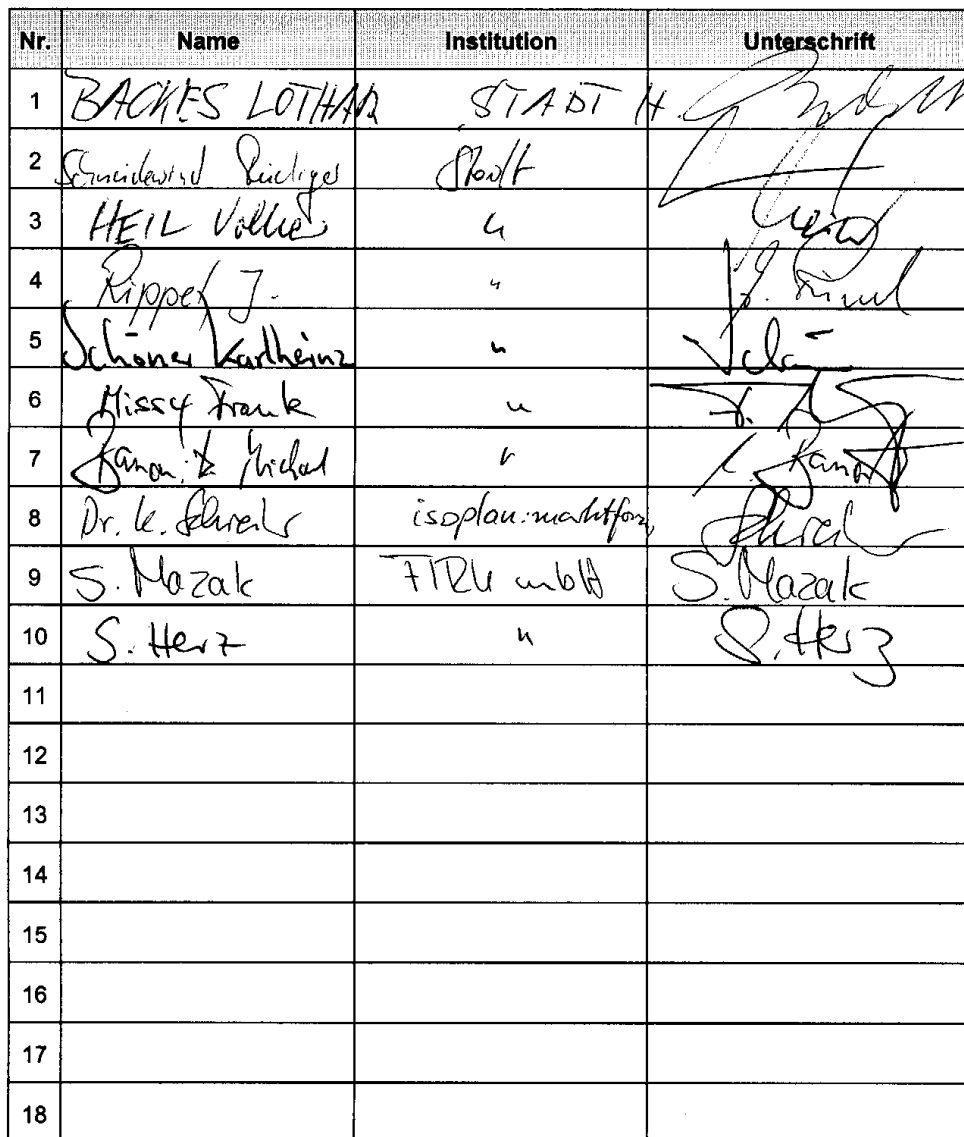 Nr. Name Institution Unterschrift
1 BACKES LOTHAR STADT H.
2 Schneidewind Rüdiger Stadt
3 HEIL Volker "
4 J. "
5 Schöner Karlheinz "
6 Missy Frank "
7 Michael "
8 Dr. K. Schreiber isoplan:marktforsch.
9 S. Mazak FIRU mbH S. Mazak
10 S. Herz " S. Herz
11
12
13
14
15
16
17
18